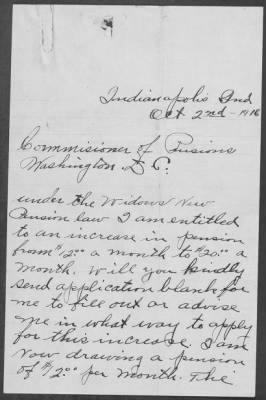 Indianapolis Ind
Oct 2nd - 1916
Commisioner of Pensions
Washington D.C.
under the Widows New
Pension law I am entitled
to an increase in pension
from $12.00 a month to $20.00 a
month. Will you kindly
send application blank for
me to fill out or advise
me in what way to apply
for this increase. I am
now drawing a pension
of $12.00 per month. The